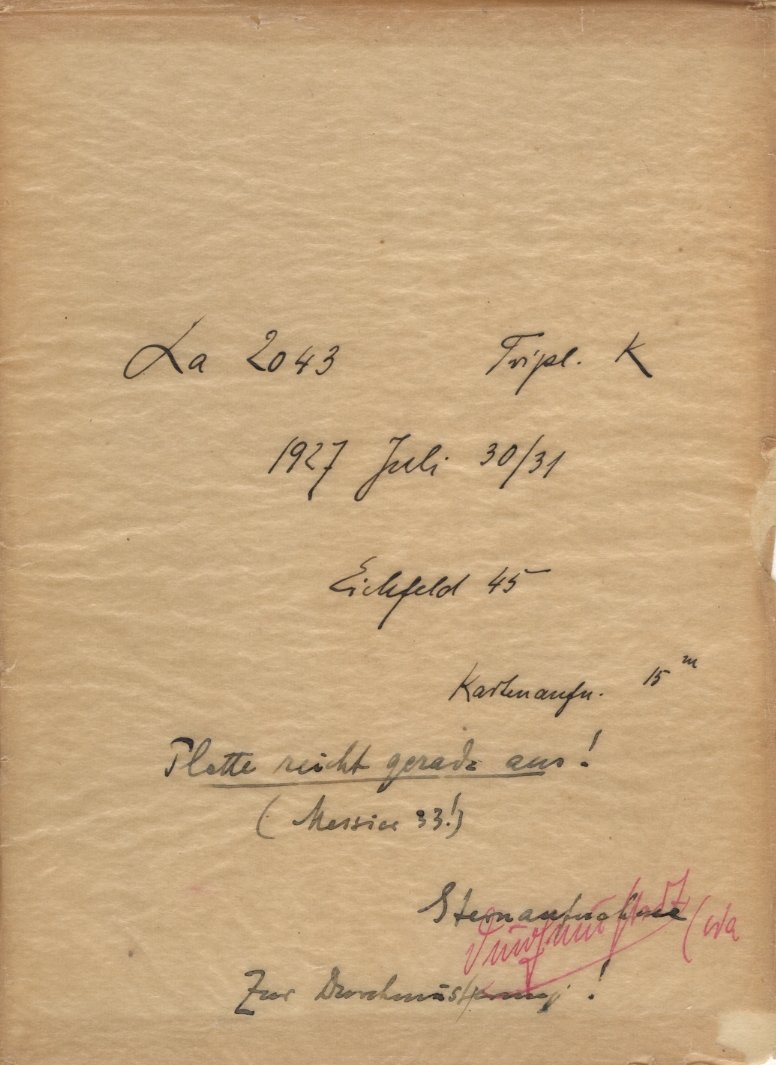 La 2043 Tripl. K
1927 Juli 30/31
Eichfeld 45
Kartenaufn. 15 m
Platte reicht gerade aus!
(Messier 33!)
Sternaufnahme
Zur Durchmusterung!